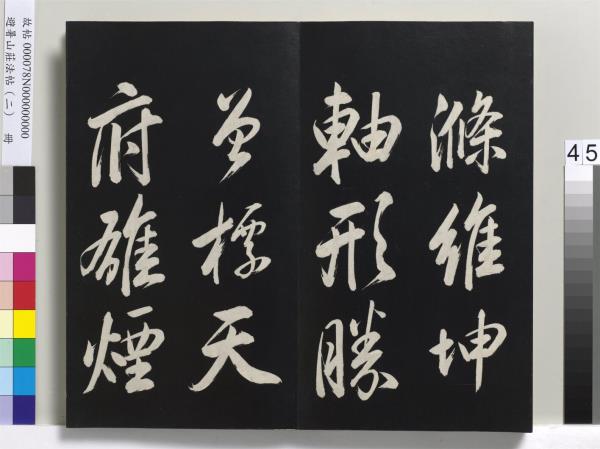 滌維坤
軸形勝
曾標天
府雄煙
故帖 000078N000000000
避暑山莊法帖（二） 冊
4 5